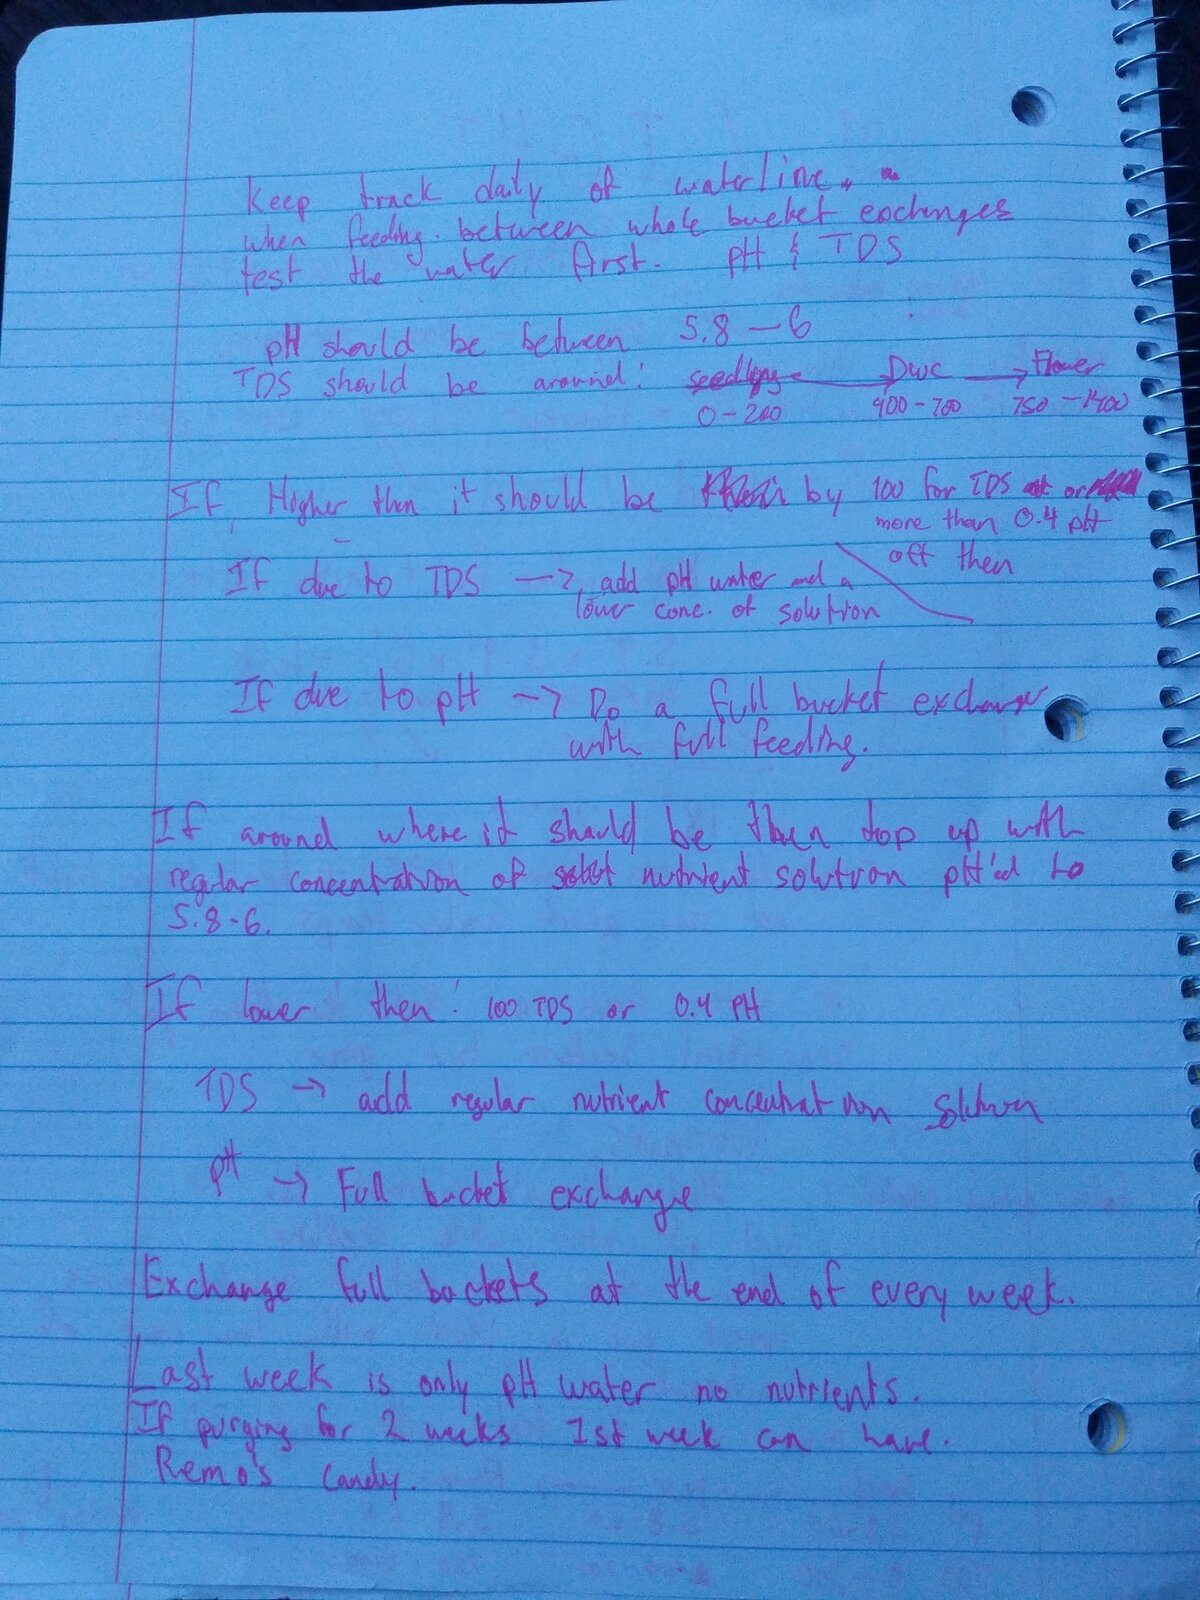 Keep track daily of waterline.
when feeding. between whole bucket exchanges
test the water first. pH & TDS
pH should be between 5.8 - 6
TDS should be around: seedlings → DWC → Flower
0-200 400-700 750-1400
If Higher then it should be by 100 for TDS or
more than 0.4 pH
off then
If due to TDS → add pH water and a
lower conc. of solution
If due to pH → Do a full bucket exchange
with full feeding.
If around where it should be then top up with
regular concentration of nutrient solution pH'd to
5.8-6.
If lower then: 100 TDS or 0.4 PH
TDS → add regular nutrient concentration solution
pH → Full bucket exchange
Exchange full buckets at the end of every week.
Last week is only pH water no nutrients.
If purging for 2 weeks 1st week can have.
Remo's Candy.